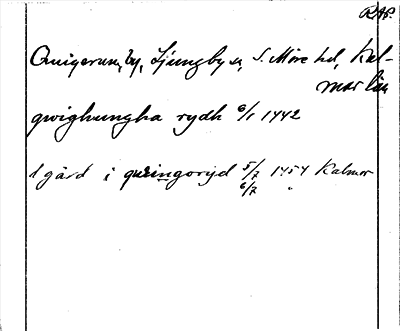 RAP.
Quigerum, by, Ljungby sn, S. Möre hd, Kal-
mar län
qwighunga rydh 6/1 1442
1 gård i quingoryd 5/7 1454 Kalmar
6/7 "